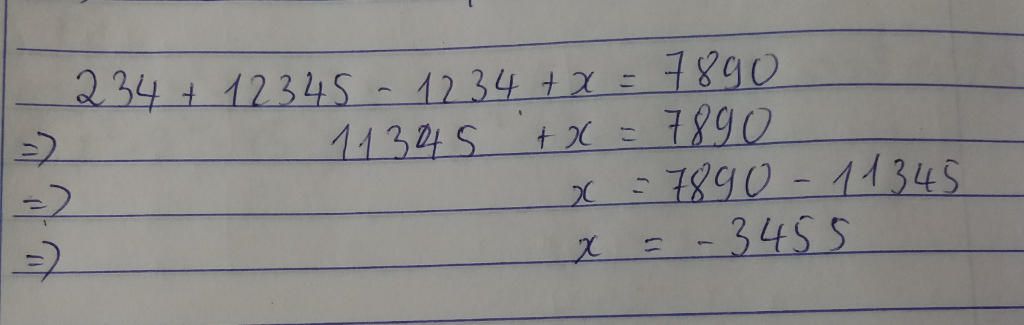 234 + 12345 - 1234 + x = 7890
=> 11345 + x = 7890
=> x = 7890 - 11345
=> x = - 3455